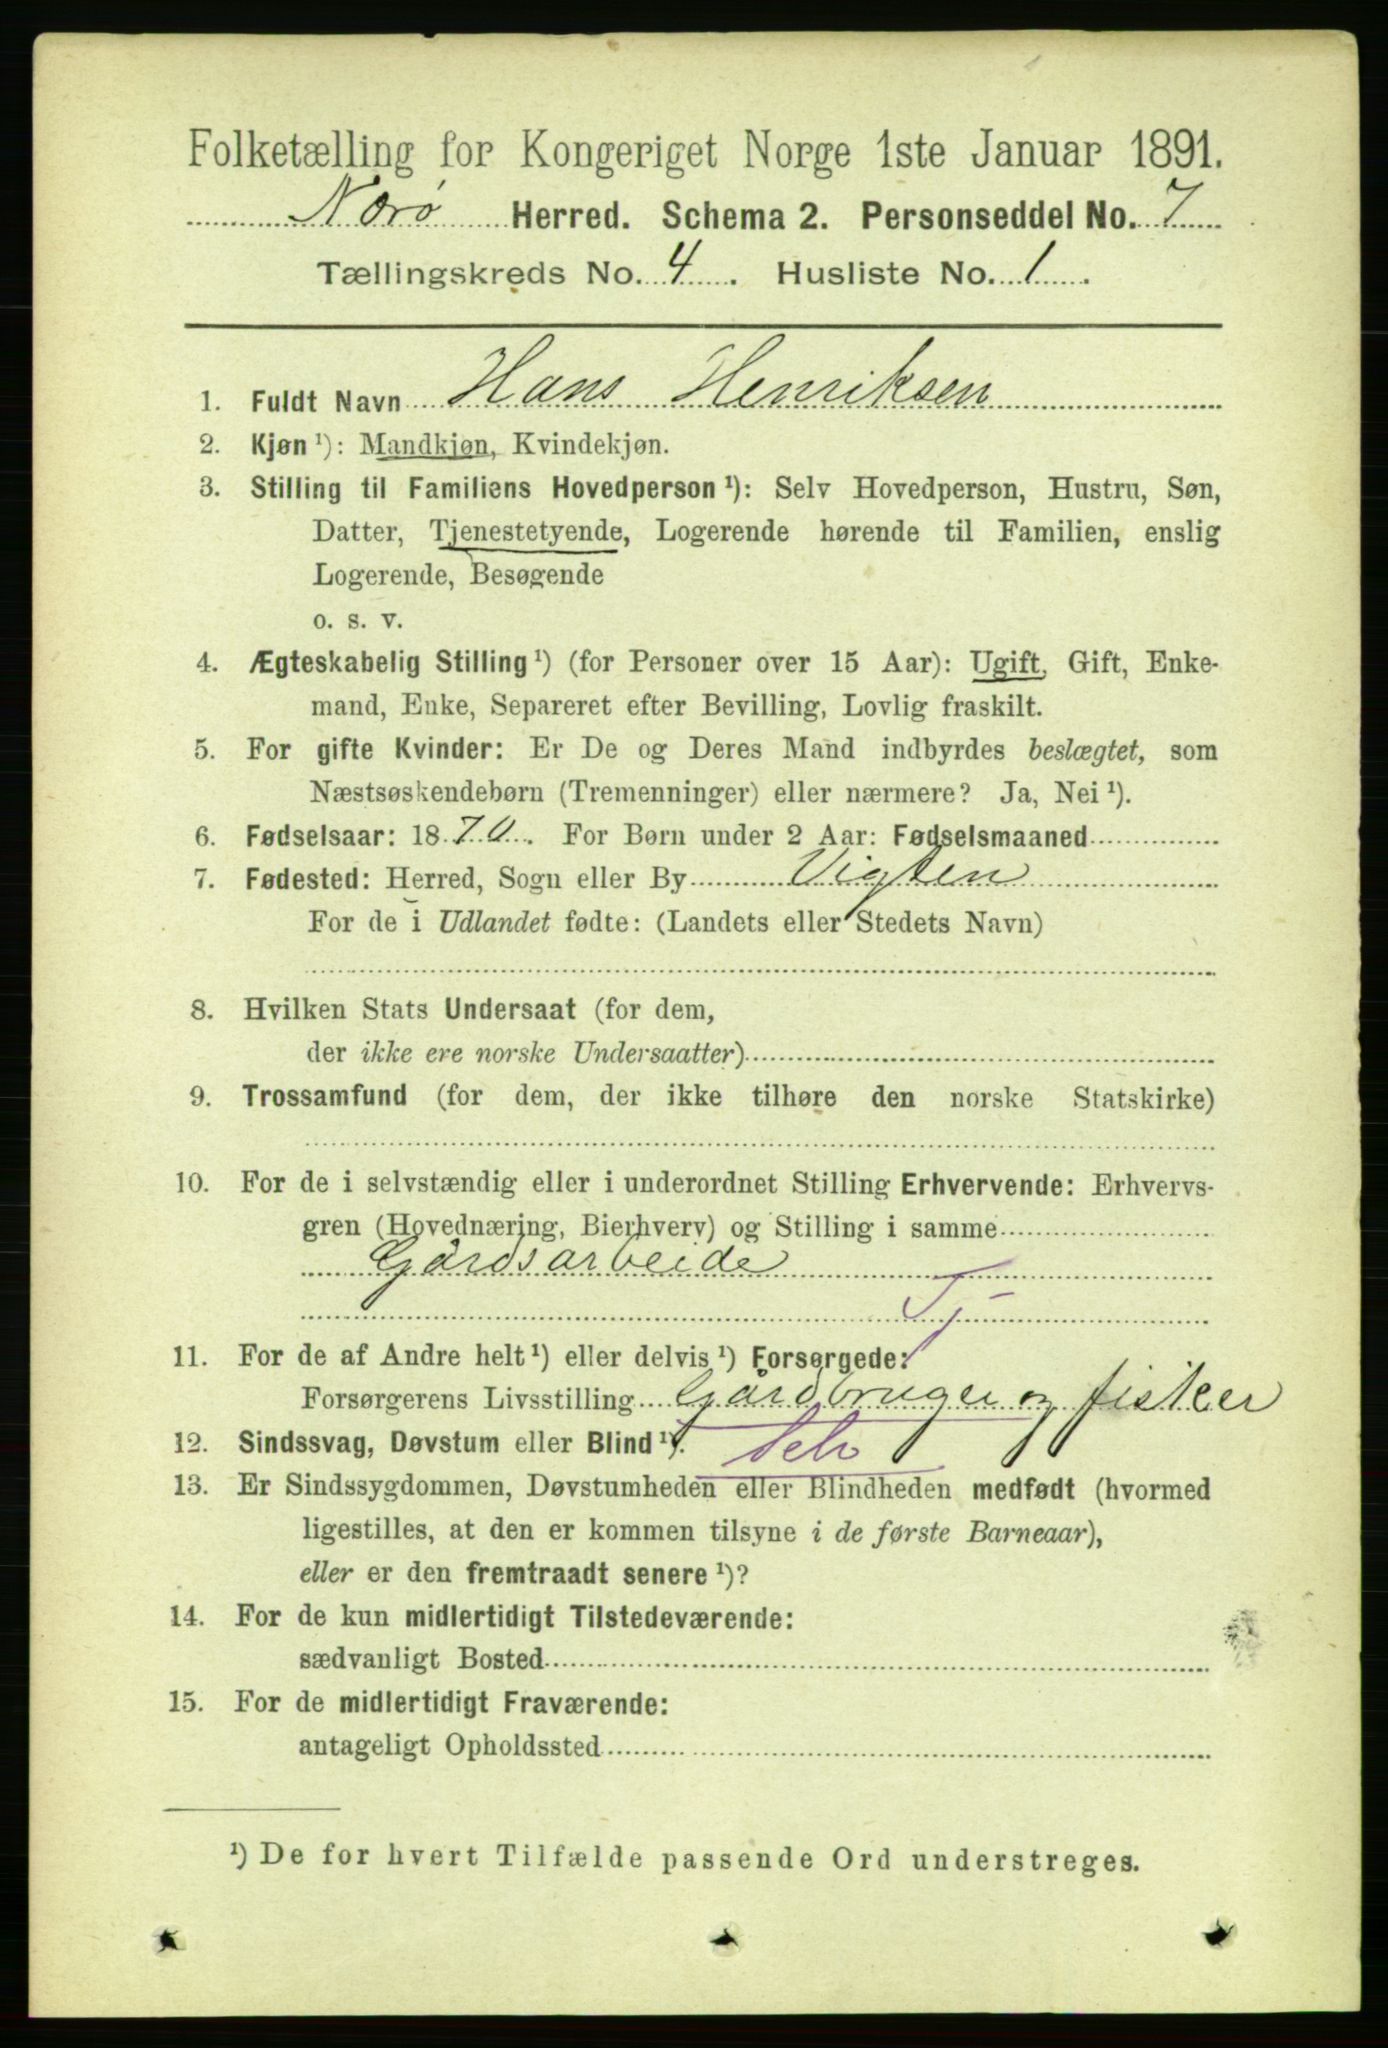 Folketælling for Kongeriget Norge 1ste Januar 1891.
Nærø Herred. Schema 2. Personseddel No. 7
Tællingskreds No. 4. Husliste No. 1.
1. Fuldt Navn Hans Henriksen
2. Kjøn ¹): Mandkjøn, Kvindekjøn.
3. Stilling til Familiens Hovedperson ¹): Selv Hovedperson, Hustru, Søn,
Datter, Tjenestetyende, Logerende hørende til Familien, enslig
Logerende, Besøgende
o. s. v.
4. Ægteskabelig Stilling ¹) (for Personer over 15 Aar): Ugift, Gift, Enke-
mand, Enke, Separeret efter Bevilling, Lovlig fraskilt.
5. For gifte Kvinder: Er De og Deres Mand indbyrdes beslægtet, som
Næstsøskendebørn (Tremenninger) eller nærmere? Ja, Nei ¹).
6. Fødselsaar: 1870. For Børn under 2 Aar: Fødselsmaaned
7. Fødested: Herred, Sogn eller By Vigten
For de i Udlandet fødte: (Landets eller Stedets Navn)
8. Hvilken Stats Undersaat (for dem,
der ikke ere norske Undersaatter)
9. Trossamfund (for dem, der ikke tilhøre den norske Statskirke)
10. For de i selvstændig eller i underordnet Stilling Erhvervende: Erhvervs-
gren (Hovednæring, Bierhverv) og Stilling i samme
Gårdsarbeide
Tj
11. For de af Andre helt ¹) eller delvis ¹) Forsørgede:
Forsørgerens Livsstilling Gårdbruger og fisker
12. Sindssvag, Døvstum eller Blind ¹). Selv
13. Er Sindssygdommen, Døvstumheden eller Blindheden medfødt (hvormed
ligestilles, at den er kommen tilsyne i de første Barneaar),
eller er den fremtraadt senere ¹)?
14. For de kun midlertidigt Tilstedeværende:
sædvanligt Bosted
15. For de midlertidigt Fraværende:
antageligt Opholdssted
¹) De for hvert Tilfælde passende Ord understreges.